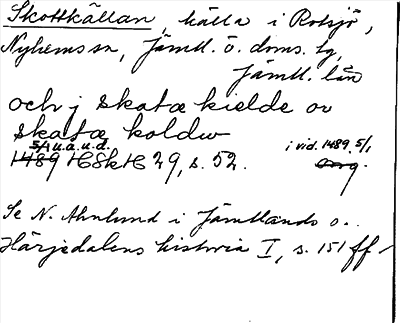 Skottkällan, källa i Rotsjö,
Nyhems sn, Jämtl. ö. doms. tg,
Jämtl. län
och j skatæ kielde ov
skatæ koldw
5/1 u.a.u.d. i vid. 1489 5/1
1489 HSkH 29, s. 52. orig.
Se N. Ahnlund i Jämtlands o.
Härjedalens historia I, s. 151 ff